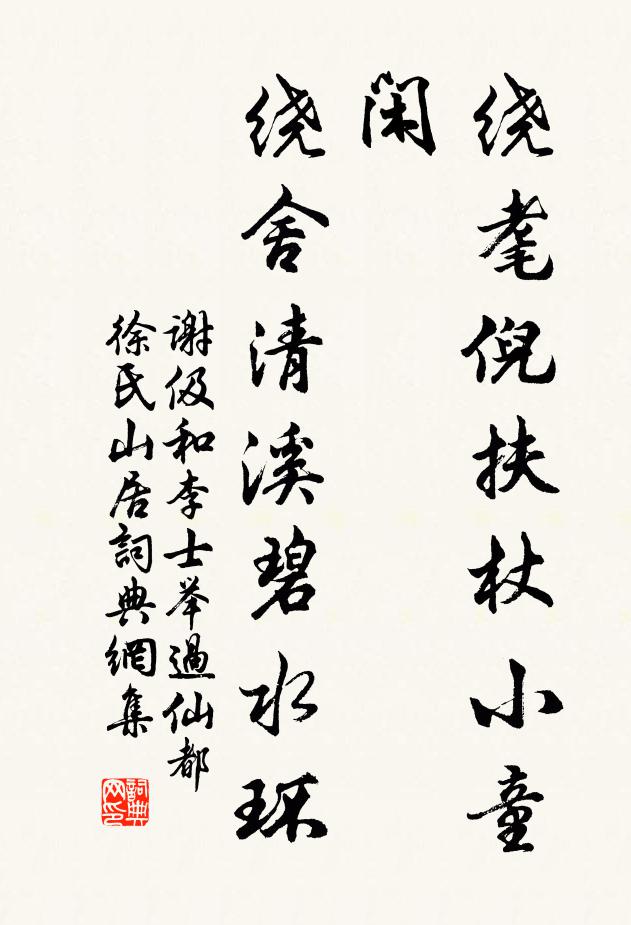 绕耄倪扶杖小童
闲
绕舍清溪碧水环
谢伋和李士举過仙都
徐氏山居詞典網集
詞典
网印